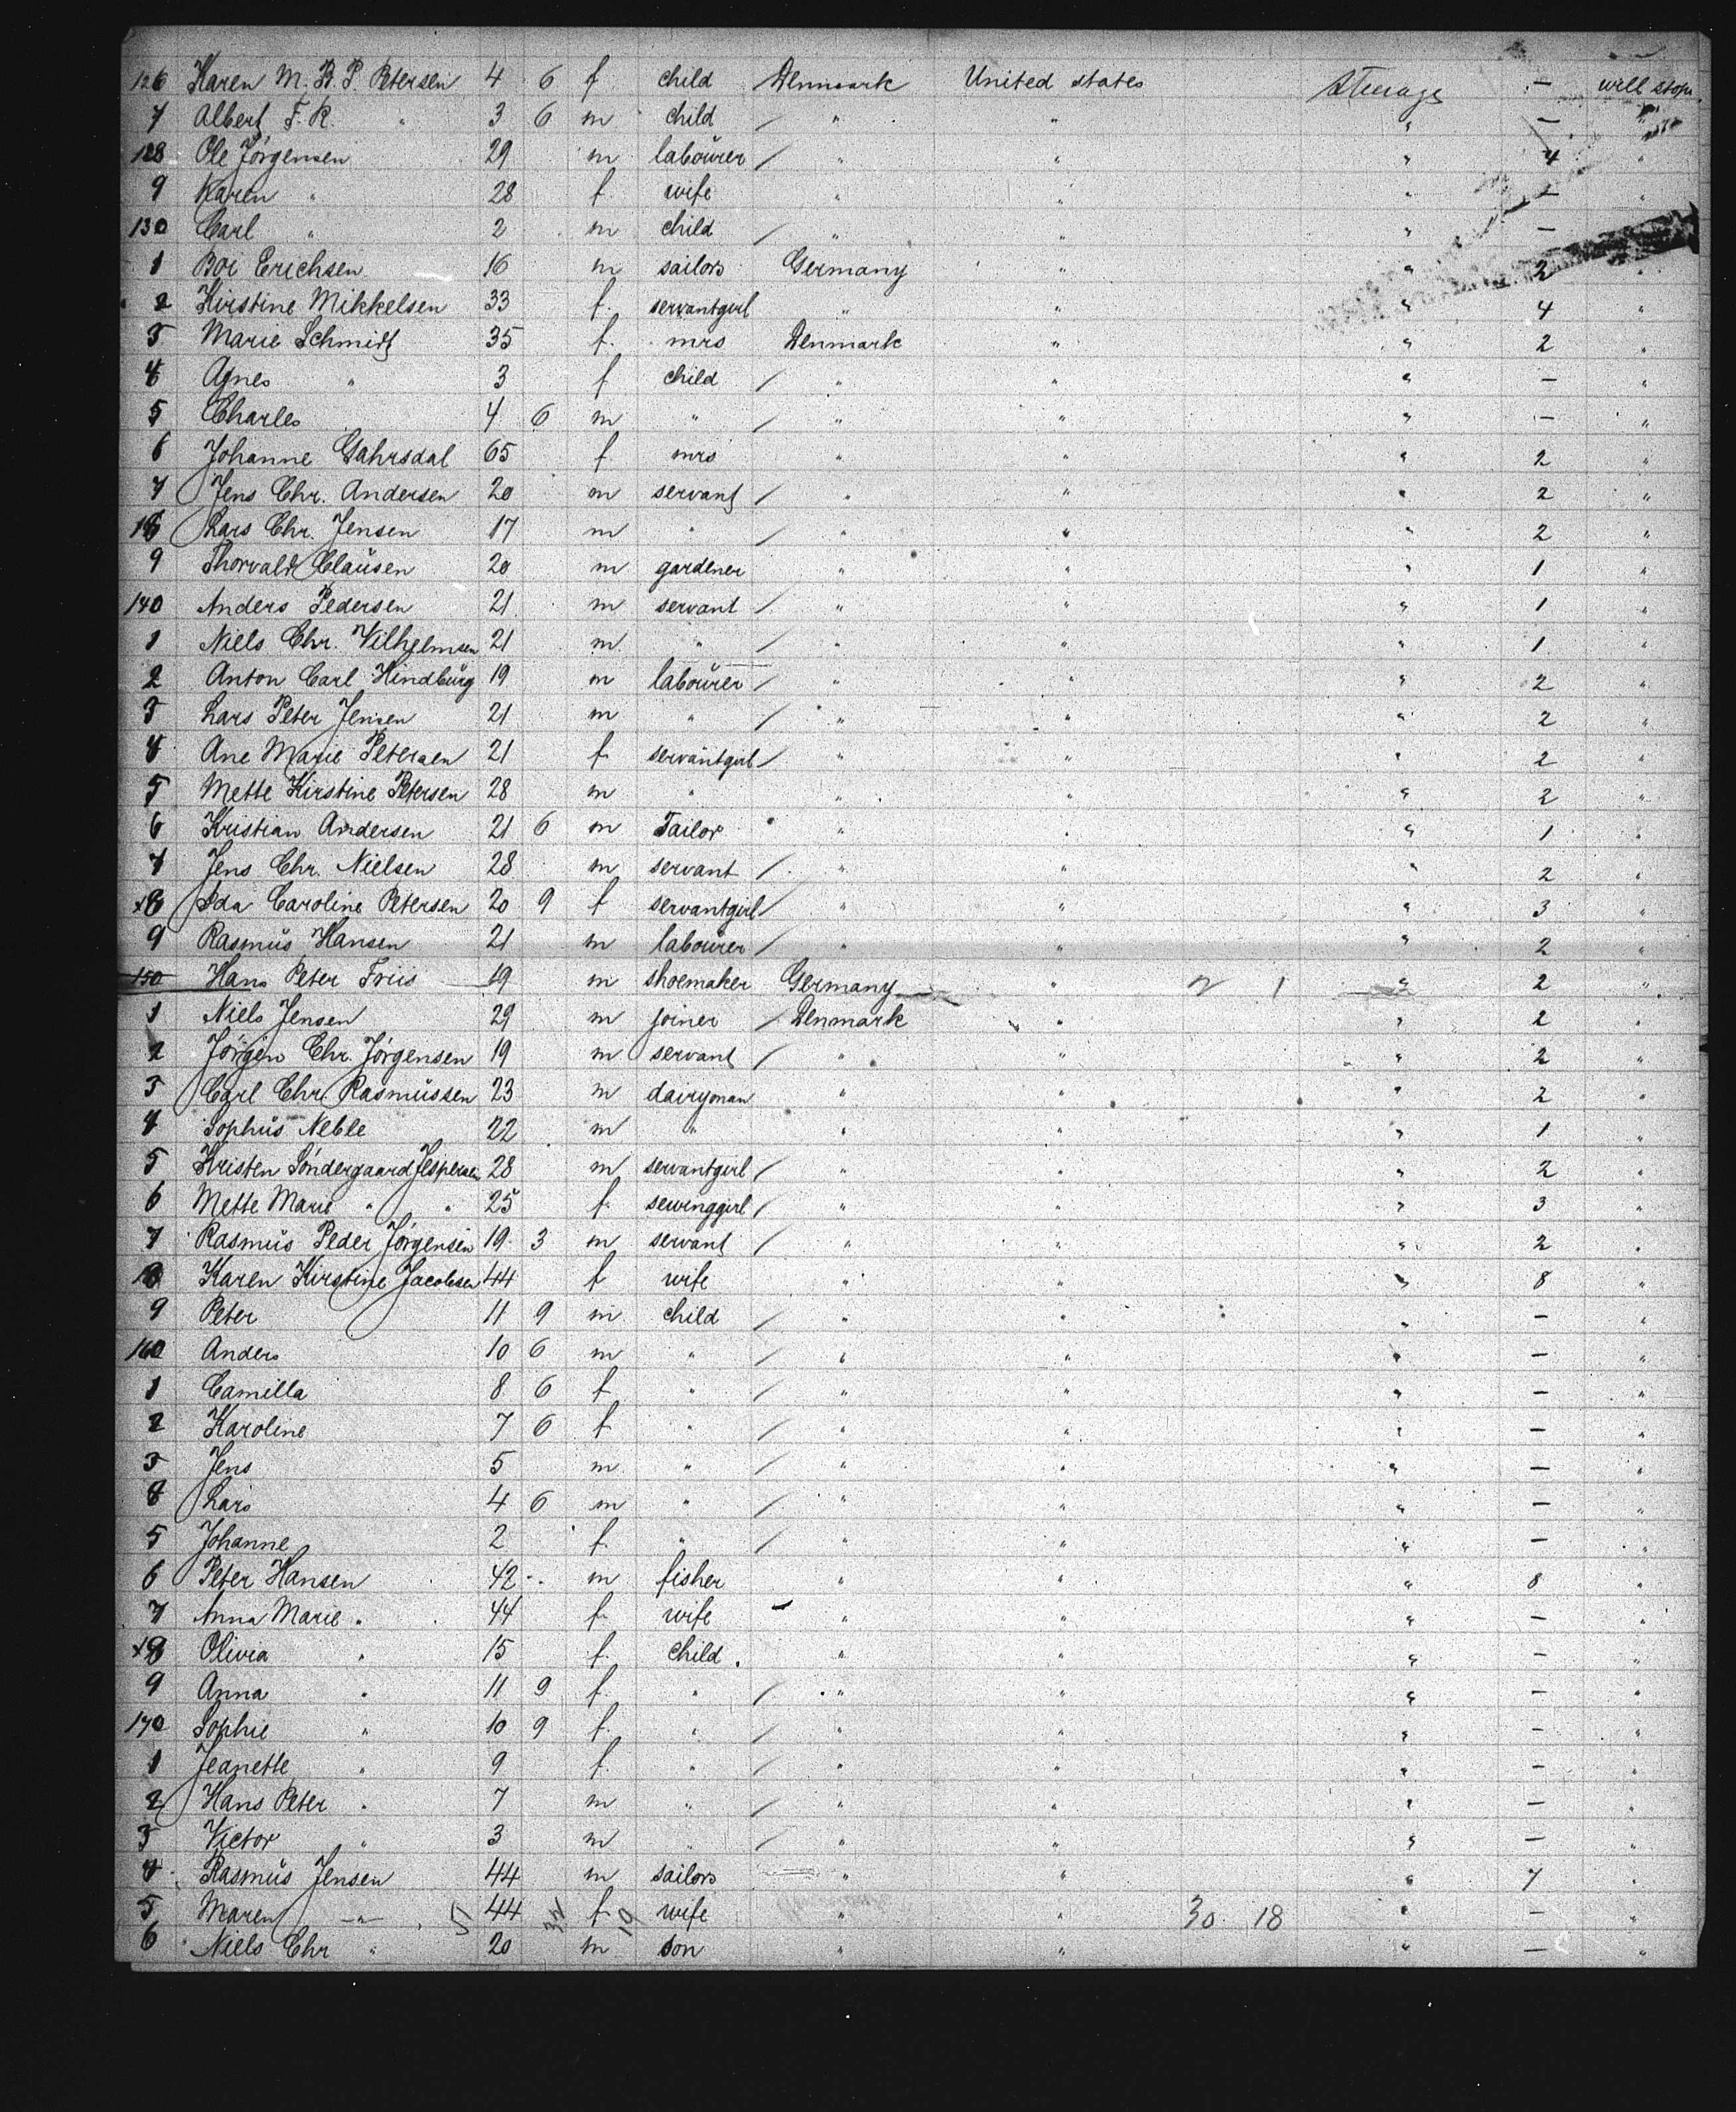 126 Karen M. B. P. Petersen 4 6 f child Denmark United states Steerage — will stop
7 Albert F. R. " 3 6 m child / " " " — "
128 Ole Jörgensen 29 m laboürer / " " " 4 "
9 Karen " 28 f. wife " " " — "
130 Carl " 2 m child / " " " —
1 Boi Erichsen 16 m sailors Germany " " 2 "
2 Kirstine Mikkelsen 33 f. servantgirl " " " 4 "
3 Marie Schmidt 35 f. mrs Denmark " " 2 "
4 Agnes " 3 f child / " " " — "
5 Charles 4 6 m " / " " " — "
6 Johanne Gahrsdal 65 f. mrs " " " 2 "
7 Jens Chr. Andersen 20 m servant / " " " 2 "
138 Lars Chr. Jensen 17 m " / " " " 2 "
9 Thorvald Claüsen 20 m gardener " " " 1 "
140 Anders Pedersen 21 m servant / " " " 1 "
1 Niels Chr. Vilhelmsen 21 m " / " " " 1 "
2 Anton Carl Hindbürg 19 m laboürer / " " " 2 "
3 Lars Peter Jensen 21 m " / " " " 2 "
4 Ane Marie Petersen 21 f servantgirl / " " " 2 "
5 Mette Kirstine Petersen 28 m " " " " 2 "
6 Kristian Andersen 21 6 m Tailor " " " 1 "
7 Jens Chr. Nielsen 28 m servant / " " " 2 "
8 Ida Caroline Petersen 20 9 f servantgirl / " " " 3 "
9 Rasmüs Hansen 21 m laboürer / " " " 2 "
150 Hans Peter Friis 19 m shoemaker Germany " 2 1 " 2 "
1 Niels Jensen 29 m joiner / Denmark " " 2 "
2 Jörgen Chr. Jörgensen 19 m servant / " " " 2 "
3 Carl Chr Rasmüssen 23 m dairyman " " " 2 "
4 Sophüs Neble 22 m " " " " 1 "
5 Kristen Söndergaard Jespersen 28 m servantgirl / " " " 2 "
6 Mette Marie " " 25 f. sewinggirl / " " " 3 "
7 Rasmüs Peder Jörgensen 19 3 m servant / " " " 2 "
8 Karen Kirstine Jacobsen 44 f wife " " " 8 "
9 Peter 11 9 m child / " " " — "
160 Anders 10 6 m " / " " " — "
1 Camilla 8 6 f " / " " " — "
2 Karoline 7 6 f " / " " " — "
3 Jens 5 m " / " " " — "
4 Lars 4 6 m " / " " " — "
5 Johanne 2 f. " / " " " — "
6 Peter Hansen 42 m fisher " " " 8 "
7 Anna Marie " 44 f. wife " " " — "
8 Olivia " 15 f. child. " " " — "
9 Anna " 11 9 f. " / " " " — "
170 Sophie " 10 9 f. " / " " " — "
1 Jeanette " 9 f. " / " " " — "
2 Hans Peter " 7 m " / " " " — "
3 Victor " 3 m " / " " " — "
4 Rasmüs Jensen 44 m sailors " " " 7 "
5 Maren " 5 44 32 f. 19 wife " " 30 18 " — "
6 Niels Chr " 20 m son " " " — "